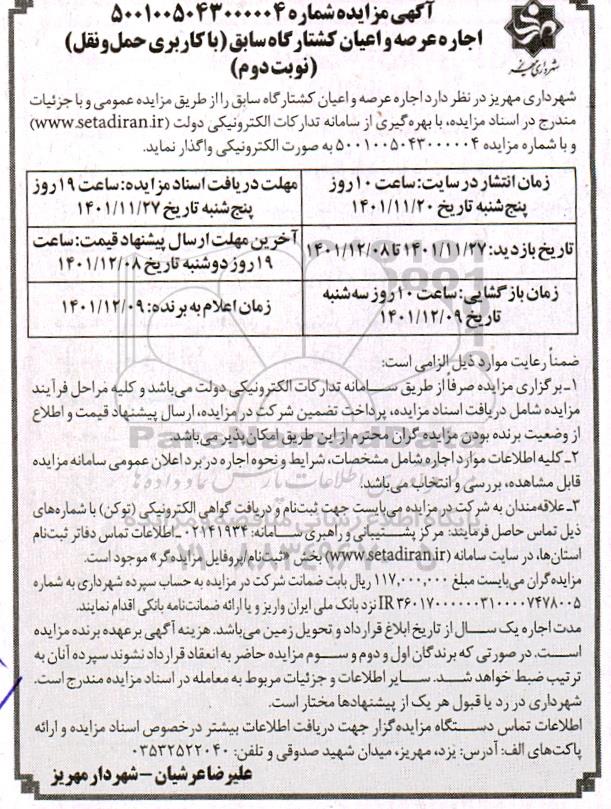 آگهی مزایده شماره ۵۰۰۱۰۰۵۰۴۳۰۰۰۰۰۴
اجاره عرصه و اعیان کشتارگاه سابق (با کاربری حمل و نقل)
(نوبت دوم)
شهرداری مهریز
شهرداری مهریز در نظر دارد اجاره عرصه و اعیان کشتارگاه سابق را از طریق مزایده عمومی و با جزئیات
مندرج در اسناد مزایده، با بهره‌گیری از سامانه تدارکات الکترونیکی دولت (www.setadiran.ir)
و با شماره مزایده ۵۰۰۱۰۰۵۰۴۳۰۰۰۰۰۴ به صورت الکترونیکی واگذار نماید.
زمان انتشار در سایت: ساعت ۱۰ روز
پنج‌شنبه تاریخ ۱۴۰۱/۱۱/۲۰
مهلت دریافت اسناد مزایده: ساعت ۱۹ روز
پنج‌شنبه تاریخ ۱۴۰۱/۱۱/۲۷
تاریخ بازدید: ۱۴۰۱/۱۱/۲۷ تا ۱۴۰۱/۱۲/۰۸
آخرین مهلت ارسال پیشنهاد قیمت: ساعت
۱۹ روز دوشنبه تاریخ ۱۴۰۱/۱۲/۰۸
زمان بازگشایی: ساعت ۱۰ روز سه‌شنبه
تاریخ ۱۴۰۱/۱۲/۰۹
زمان اعلام به برنده: ۱۴۰۱/۱۲/۰۹
ضمناً رعایت موارد ذیل الزامی است:
۱ـ برگزاری مزایده صرفا از طریق سامانه تدارکات الکترونیکی دولت می‌باشد و کلیه مراحل فرآیند
مزایده شامل دریافت اسناد مزایده، پرداخت تضمین شرکت در مزایده، ارسال پیشنهاد قیمت و اطلاع
از وضعیت برنده بودن مزایده گران محترم از این طریق امکان‌پذیر می‌باشد.
۲ـ کلیه اطلاعات موارد اجاره شامل مشخصات، شرایط و نحوه اجاره در برد اعلان عمومی سامانه مزایده
قابل مشاهده، بررسی و انتخاب می‌باشد.
۳ـ علاقه‌مندان به شرکت در مزایده می‌بایست جهت ثبت‌نام و دریافت گواهی الکترونیکی (توکن) با شماره‌های
ذیل تماس حاصل فرمایند: مرکز پشتیبانی و راهبری سامانه: ۰۲۱۴۱۹۳۴ـ اطلاعات تماس دفاتر ثبت‌نام
استان‌ها، در سایت سامانه (www.setadiran.ir) بخش «ثبت‌نام/پروفایل مزایده‌گر» موجود است.
مزایده‌گران می‌بایست مبلغ ۱۱۷,۰۰۰,۰۰۰ ریال بابت ضمانت شرکت در مزایده به حساب سپرده شهرداری به شماره
نزد بانک ملی ایران واریز و یا ارائه ضمانت‌نامه بانکی اقدام نمایند.
مدت اجاره یک سال از تاریخ ابلاغ قرارداد و تحویل زمین می‌باشد. هزینه آگهی بر عهده برنده مزایده
است. در صورتی که برندگان اول و دوم و سوم مزایده حاضر به انعقاد قرارداد نشوند سپرده آنان به
ترتیب ضبط خواهد شد. سایر اطلاعات و جزئیات مربوط به معامله در اسناد مزایده مندرج است.
شهرداری در رد یا قبول هر یک از پیشنهادها مختار است.
اطلاعات تماس دستگاه مزایده‌گزار جهت دریافت اطلاعات بیشتر درخصوص اسناد مزایده و ارائه
پاکت‌های الف: آدرس: یزد، مهریز، میدان شهید صدوقی و تلفن: ۰۳۵۳۲۵۲۲۰۴۰
علیرضا عرشیان – شهردار مهریز